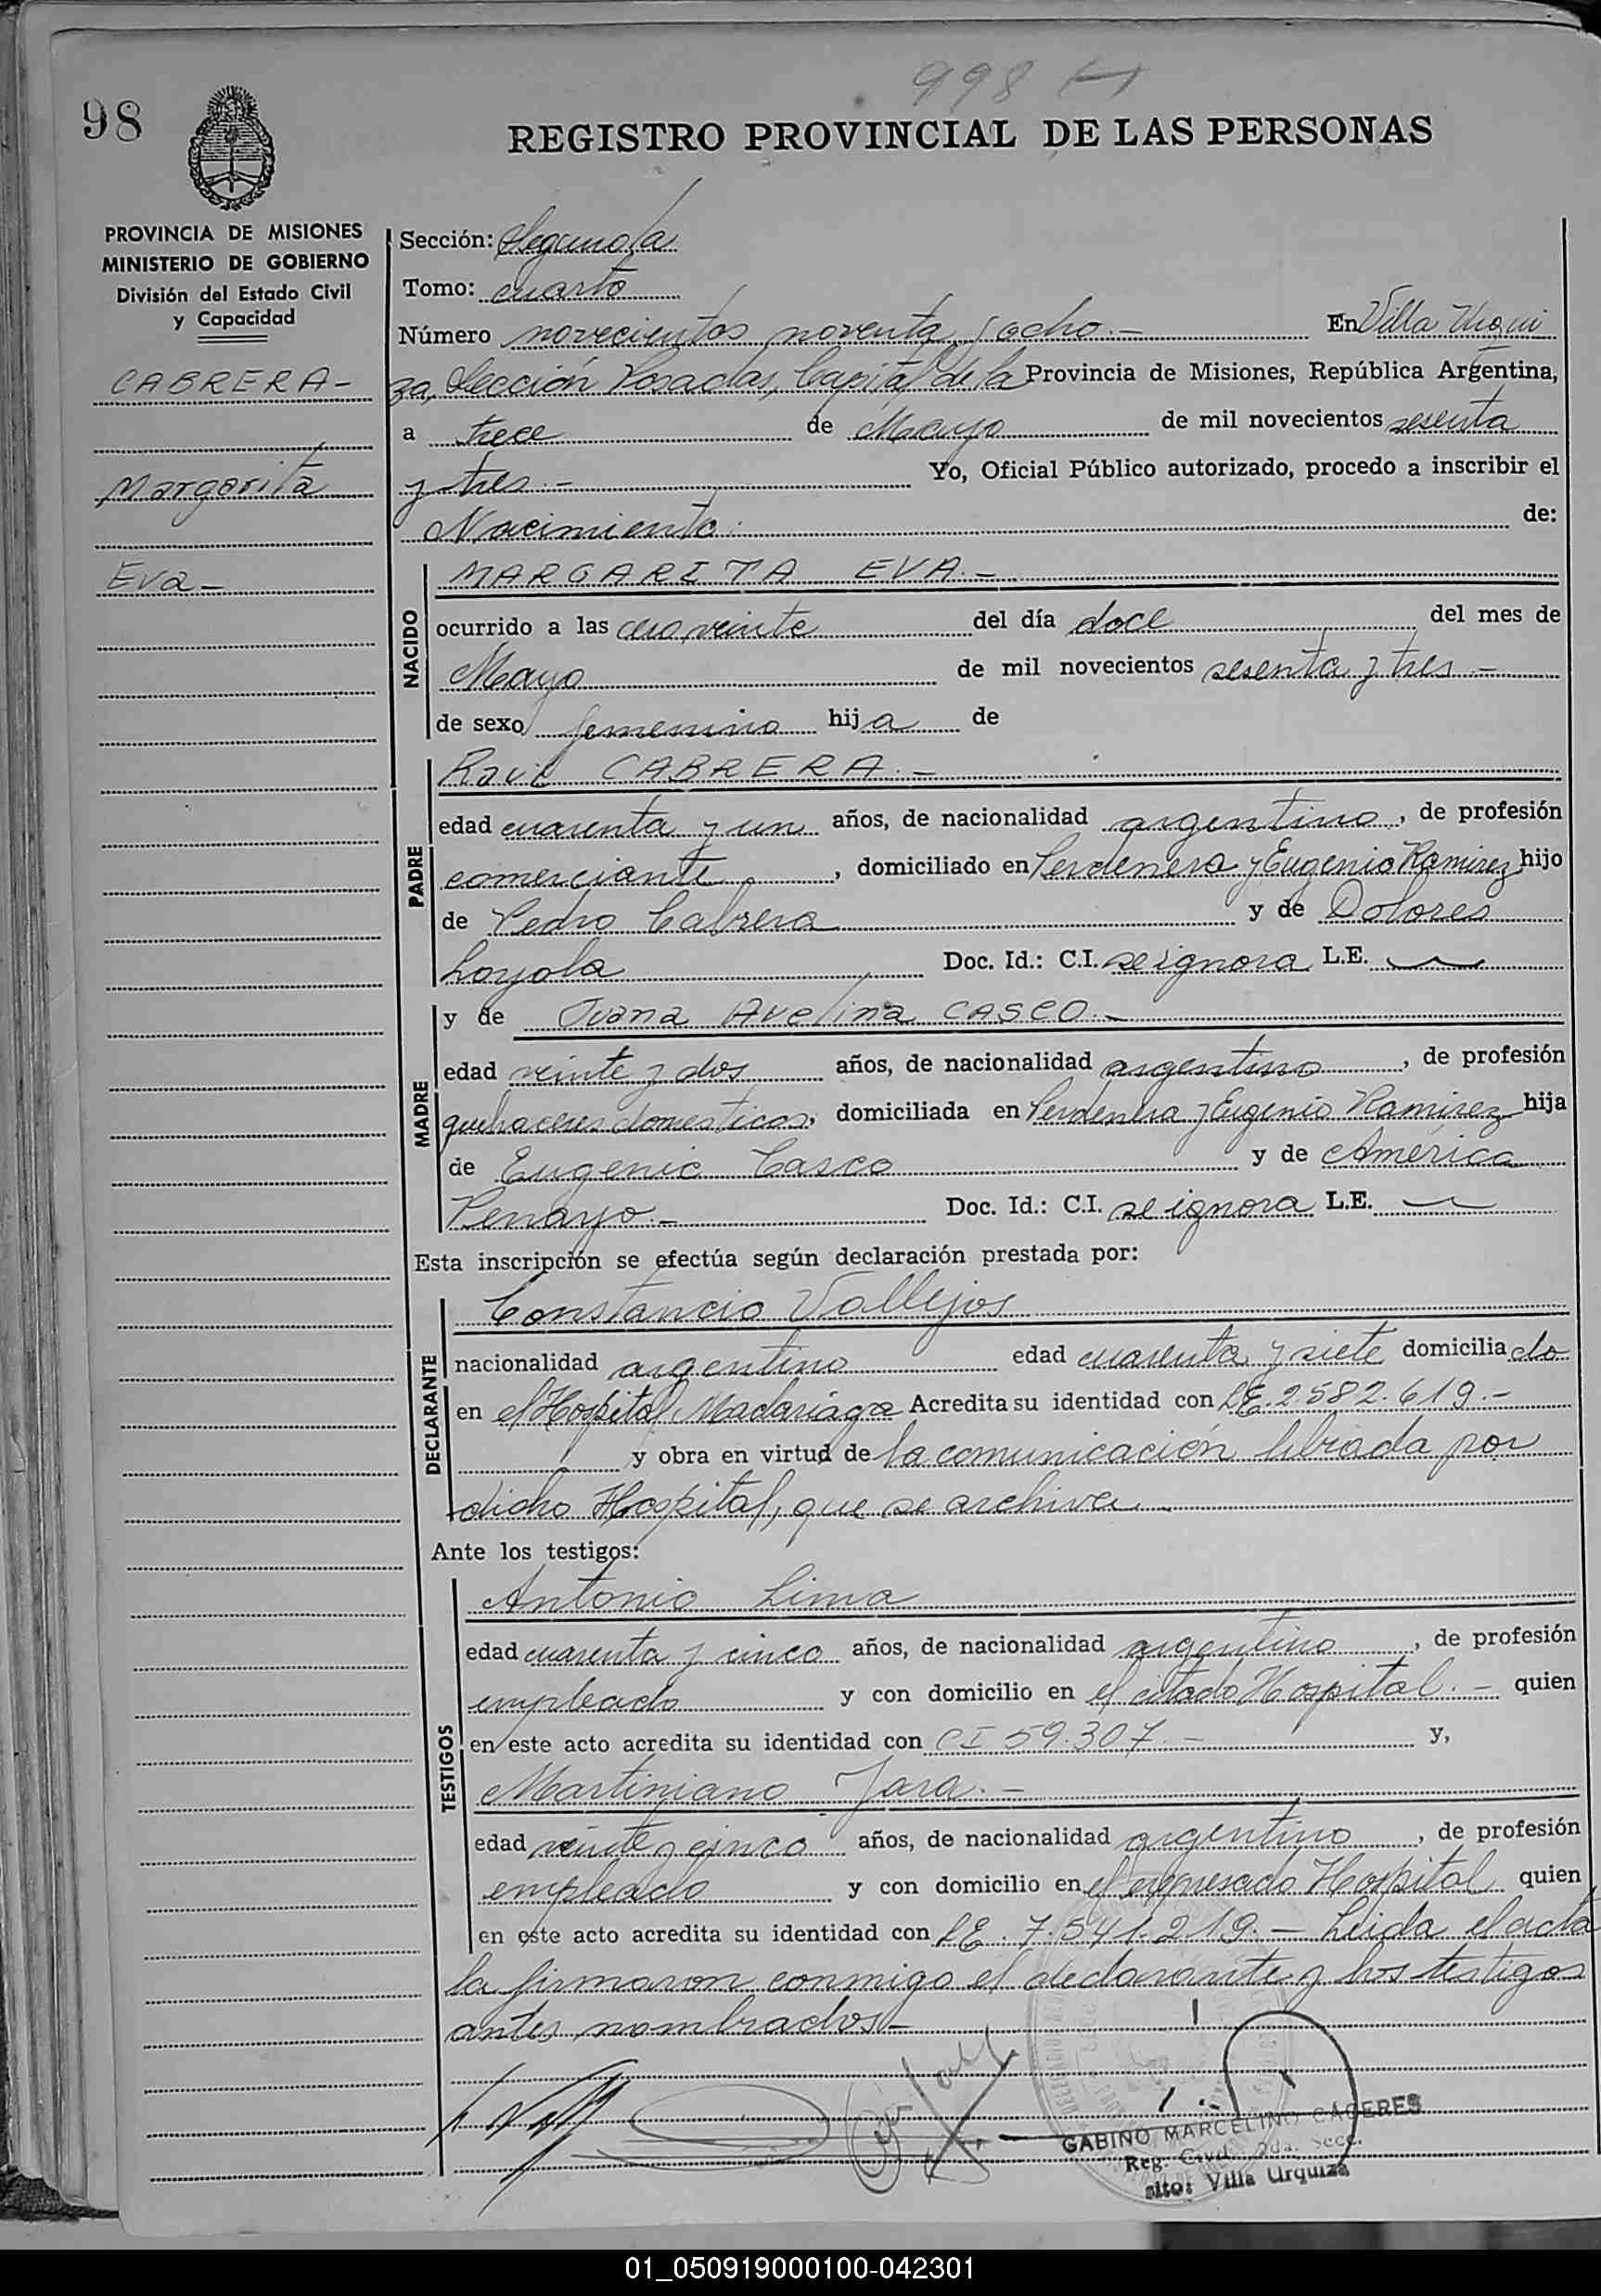 998
98
REGISTRO PROVINCIAL DE LAS PERSONAS
PROVINCIA DE MISIONES
MINISTERIO DE GOBIERNO
División del Estado Civil
y Capacidad
CABRERA-
Margarita
Eva-
Sección: Segunda
Tomo: cuarto
Número novecientos noventa y ocho.- En Villa Urqui
za, Sección Posadas, Capital de la Provincia de Misiones, República Argentina,
a trece de Mayo de mil novecientos sesenta
y tres.- Yo, Oficial Público autorizado, procedo a inscribir el
Nacimiento de:
NACIDO
MARGARITA EVA.-
ocurrido a las cero veinte del día doce del mes de
Mayo de mil novecientos sesenta y tres.-
de sexo femenino hija de
PADRE
Raúl CABRERA.-
edad cuarenta y un años, de nacionalidad argentino, de profesión
comerciante, domiciliado en Perdenera y Eugenio Ramirez hijo
de Pedro Cabrera y de Dolores
Loyola Doc. Id.: C.I. se ignora L.E.
MADRE
y de Juana Avelina CASCO.-
edad veinte y dos años, de nacionalidad argentina, de profesión
quehaceres domesticos, domiciliada en Perdenera y Eugenio Ramirez hija
de Eugenio Casco y de América
Penayo.- Doc. Id.: C.I. se ignora L.E.
Esta inscripción se efectúa según declaración prestada por:
DECLARANTE
Constancio Vallejos
nacionalidad argentino edad cuarenta y siete domiciliado
en el Hospital Madariaga Acredita su identidad con LE.2.582.619.-
y obra en virtud de la comunicación librada por
dicho Hospital, que se archiva.-
Ante los testigos:
TESTIGOS
Antonio Lima
edad cuarenta y cinco años, de nacionalidad argentino, de profesión
empleado y con domicilio en el citado Hospital.- quien
en este acto acredita su identidad con CI 59.307.- y,
Martiniano Jara.-
edad veinte y cinco años, de nacionalidad argentino, de profesión
empleado y con domicilio en el expresado Hospital quien
en este acto acredita su identidad con LE. 7.541.219.- Leida el acta
la firmaron conmigo el declarante y los testigos
antes nombrados.-
GABINO MARCELINO CÁCERES
Reg. Civil 2da. Secc.
sito: Villa Urquiza
01_050919000100-042301